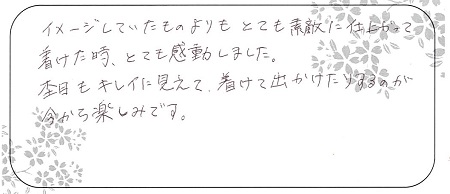 イメージしていたものよりもとても素敵に仕上がって
着けた時、とても感動しました。
杢目もキレイに見えて、着けて出かけたりするのが
今から楽しみです。